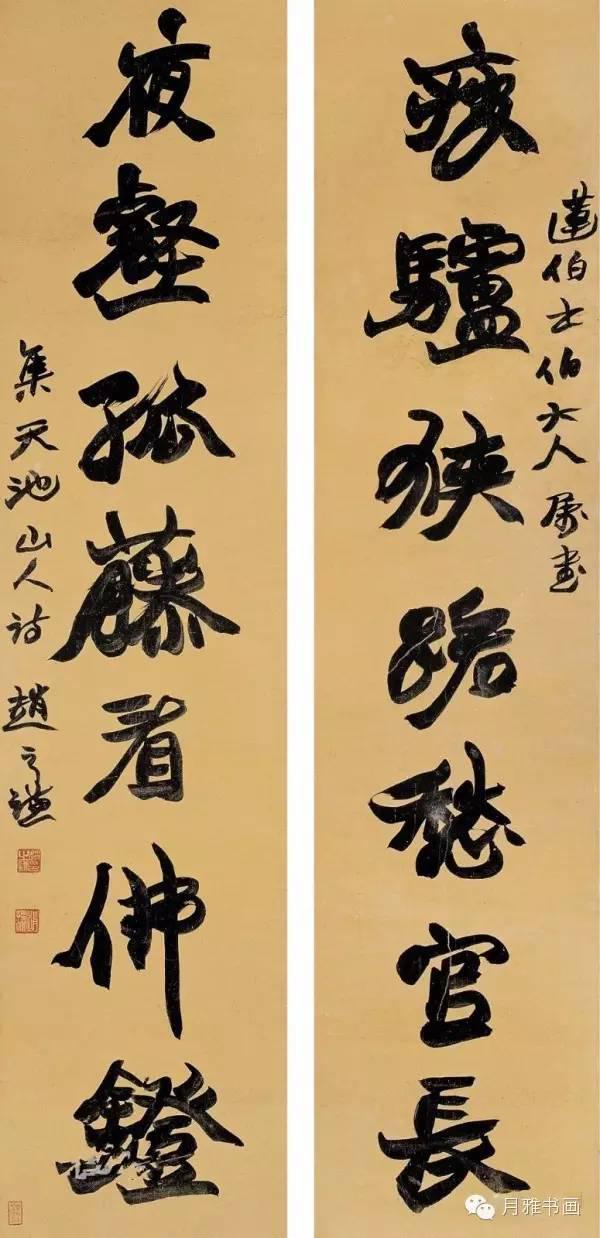 蓮伯士伯大人屬書
瘦驢狹路愁官長
夜壑孤藤看佛鐙
集天池山人詩 趙之謙
月雅书画